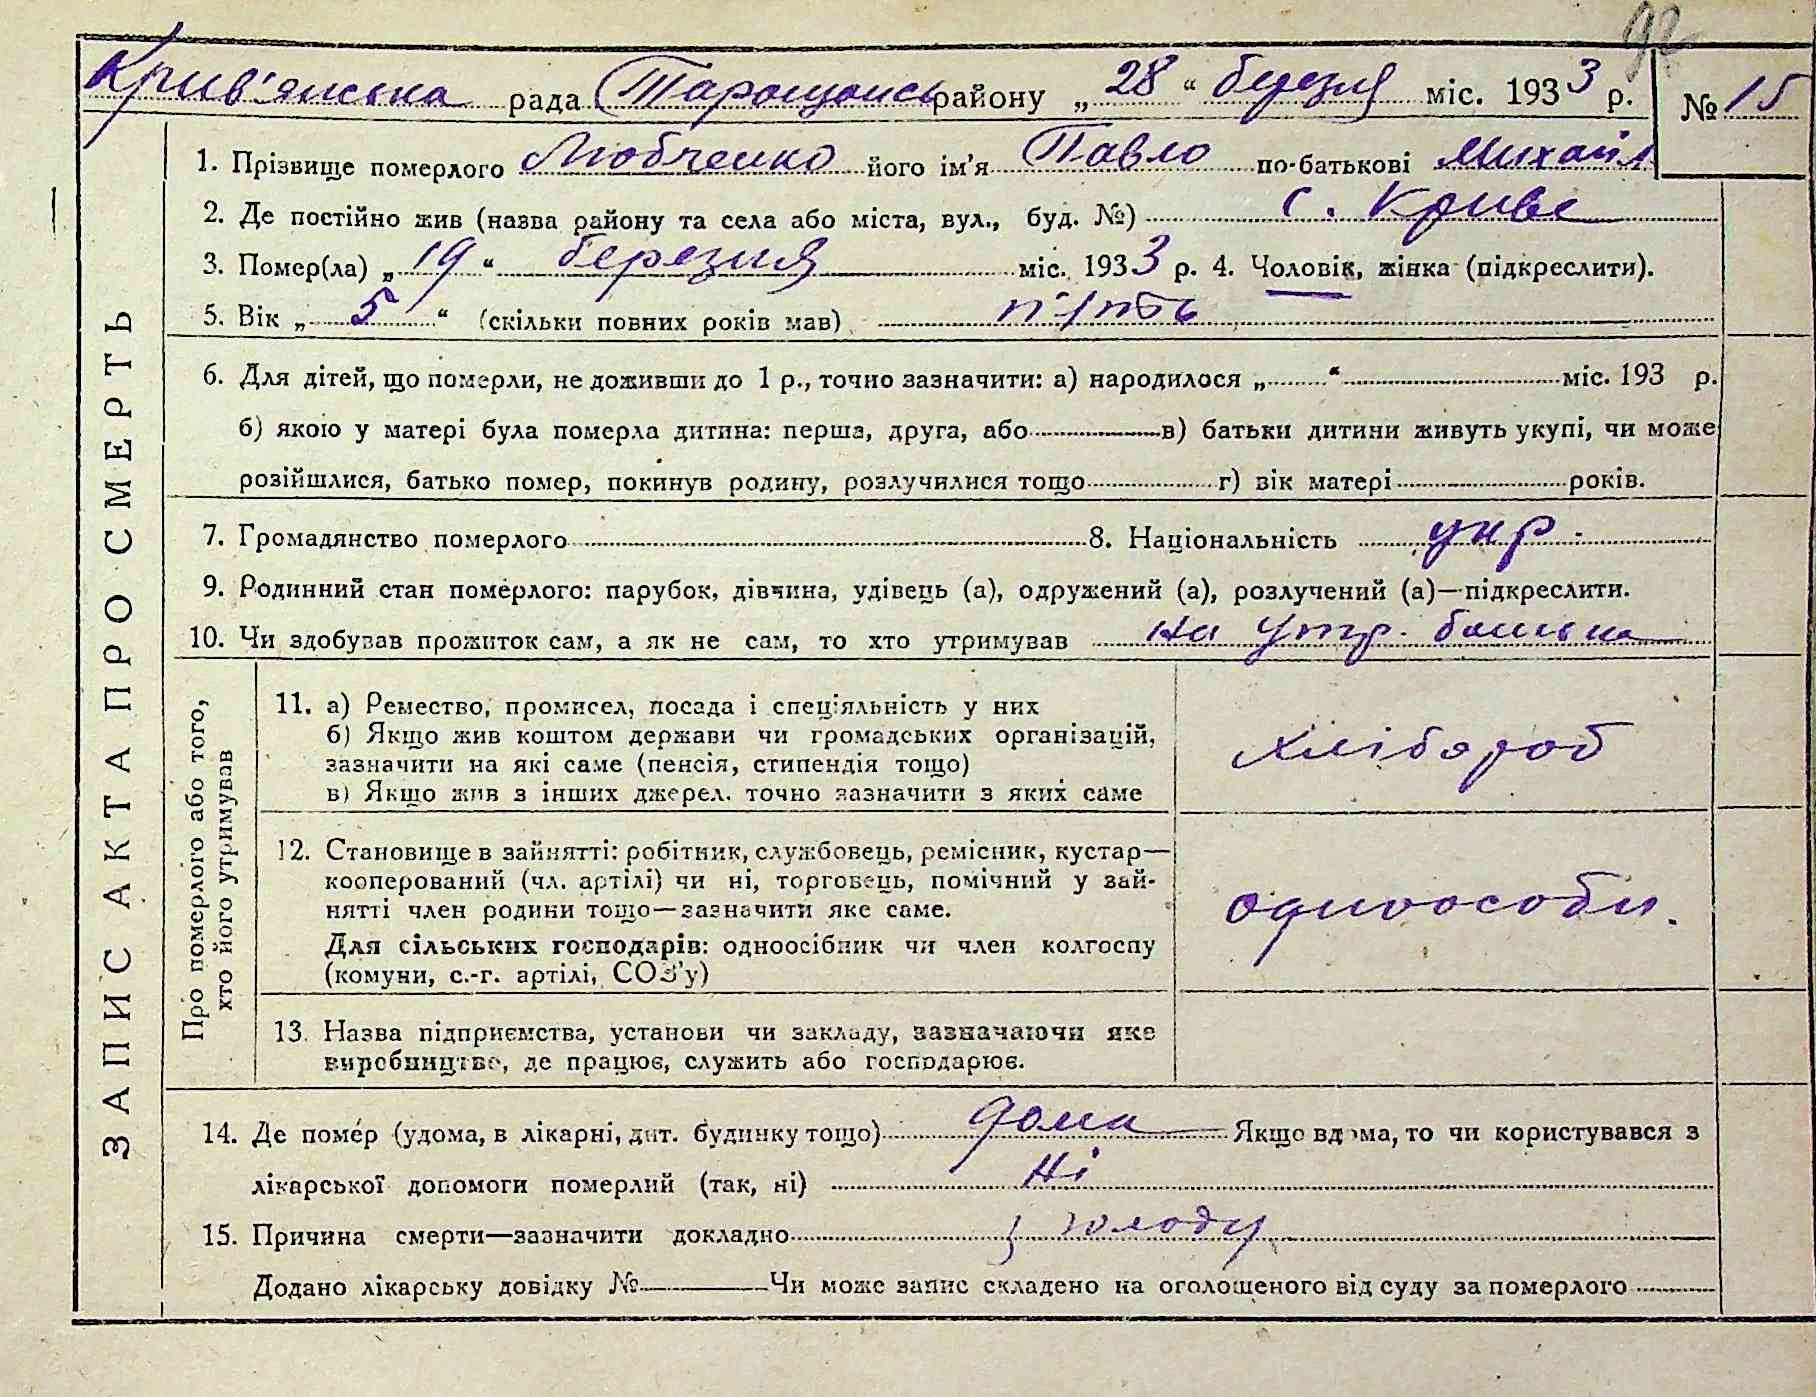 92
Крив'янська рада Таращанськ району „28“ березня міс. 1933 р. № 15
ЗАПИС АКТА ПРО СМЕРТЬ
1. Прізвище померлого Любченко його ім'я Павло по-батькові Михайл
2. Де постійно жив (назва району та села або міста, вул., буд. №) с. Криве
3. Помер(ла) „19“ березня міс. 1933 р. 4. Чоловік, жінка (підкреслити).
5. Вік „5“ (скільки повних років мав) п'ять
6. Для дітей, що померли, не доживши до 1 р., точно зазначити: а) народилося „ “ міс. 193 р.
б) якою у матері була померла дитина: перша, друга, або в) батьки дитини живуть укупі, чи може
розійшлися, батько помер, покинув родину, розлучилися тощо г) вік матері років.
7. Громадянство померлого 8. Національність укр.
9. Родинний стан померлого: парубок, дівчина, удівець (а), одружений (а), розлучений (а)—підкреслити.
10. Чи здобував прожиток сам, а як не сам, то хто утримував на утр. батька
Про померлого або того,
хто його утримував
11. а) Ремество, промисел, посада і спеціяльність у них
б) Якщо жив коштом держави чи громадських організацій,
зазначити на які саме (пенсія, стипендія тощо)
в) Якщо жив з інших джерел. точно зазначити з яких саме
хлібороб
12. Становище в зайнятті: робітник, службовець, ремісник, кустар—
кооперований (чл. артілі) чи ні, торговець, помічний у зай-
нятті член родини тощо—зазначити яке саме.
Для сільських господарів: одноосібник чи член колгоспу
(комуни, с.-г. артілі, СОЗ'у)
одноособн.
13. Назва підприємства, установи чи закладу, зазначаючи яке
виробництво, де працює, служить або господарює.
14. Де помер (удома, в лікарні, дит. будинку тощо) дома Якщо вдома, то чи користувався з
лікарської допомоги померлий (так, ні) Ні
15. Причина смерти—зазначити докладно з голоду
Додано лікарську довідку № Чи може запис складено на оголошеного від суду за померлого